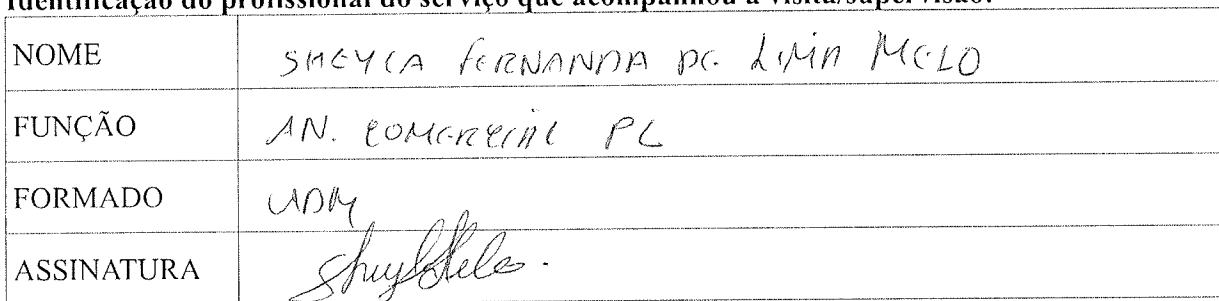 Identificação do profissional do serviço que acompanhou a visita/supervisão:
NOME SHEYLA FERNANDA DE LIMA MELO
FUNÇÃO AN. COMERCIAL PL
FORMADO ADM
ASSINATURA